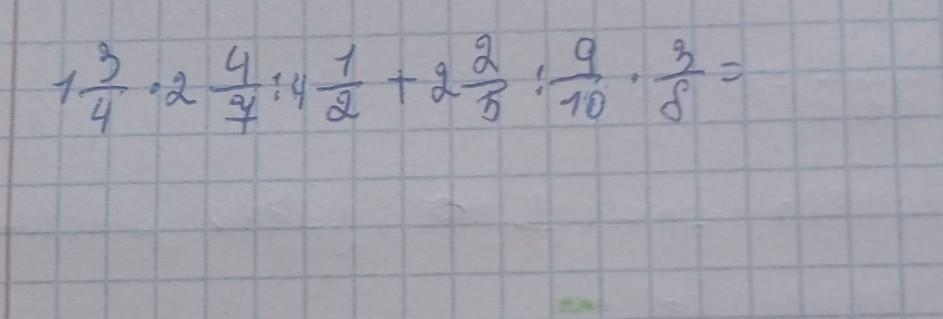 1 3/4 · 2 4/7 : 4 1/2 + 2 2/5 : 9/10 · 3/8 =